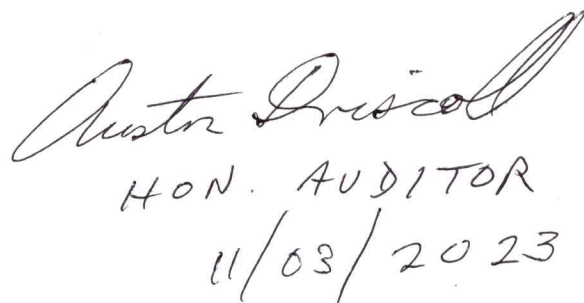 Austin Driscoll
HON. AUDITOR
11/03/2023